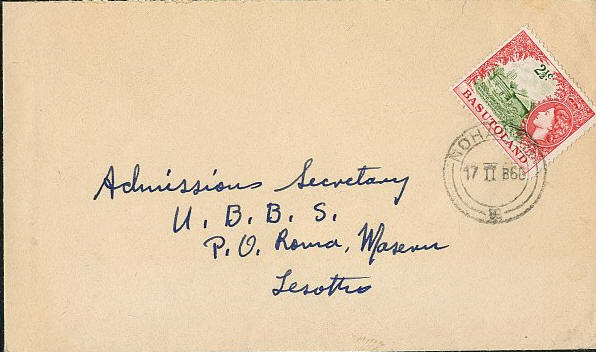 2½c
BASUTOLAND
17 II B66
Admissions Secretary
U. B. B. S.
P. O. Roma, Maseru
Lesotho